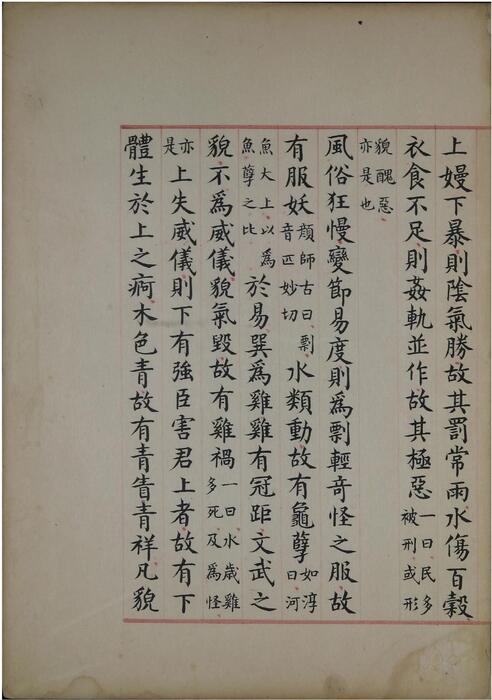 上嫚下暴則陰氣勝故其罰常雨水傷百穀
衣食不足則姦軌並作故其極惡一曰民多被刑或形
貌醜惡亦是也
風俗狂慢變節易度則爲剽輕奇怪之服故
有服妖顔師古曰剽音匹妙切水類動故有龜孽如淳曰河
魚大上以爲魚孽之比於易巽爲雞雞有冠距文武之
貌不爲威儀貌氣毀故有雞禍一曰水歲雞多死及爲怪
亦是上失威儀則下有強臣害君上者故有下
體生於上之痾木色青故有青眚青祥凡貌